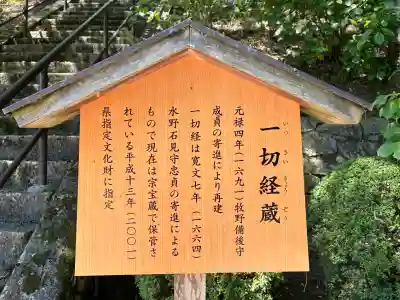 一切経蔵
いっさいきょうぞう
元禄四年(一六九一)牧野備後守
成貞の寄進により再建
一切経は寛文七年(一六六四)
水野石見守忠貞の寄進による
もので現在は宗宝蔵で保管さ
れている平成十三年(二〇〇一)
県指定文化財に指定